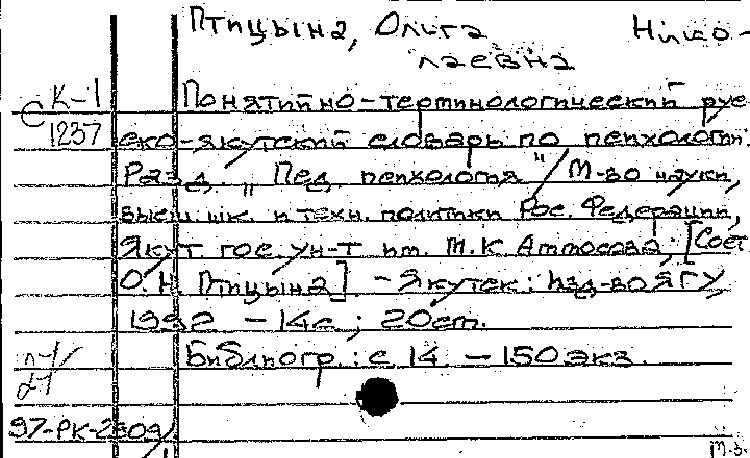 Птицына, Ольга Нико-
лаевна
К-1 Понятийно-терминологический рус-
С
1237 ско-якутский словарь по психологии.
Разд. "Пед. психология" / М-во науки,
высш. шк. и техн. политики Рос. Федерации,
Якут. гос. ун-т им. М.К Аммосова; [Сост.
О.Н Птицына]. - Якутск: Изд-во ЯГУ,
1992 - 14с; 20см.
Библиогр.: с 14. - 150 экз.
97-РК-2309